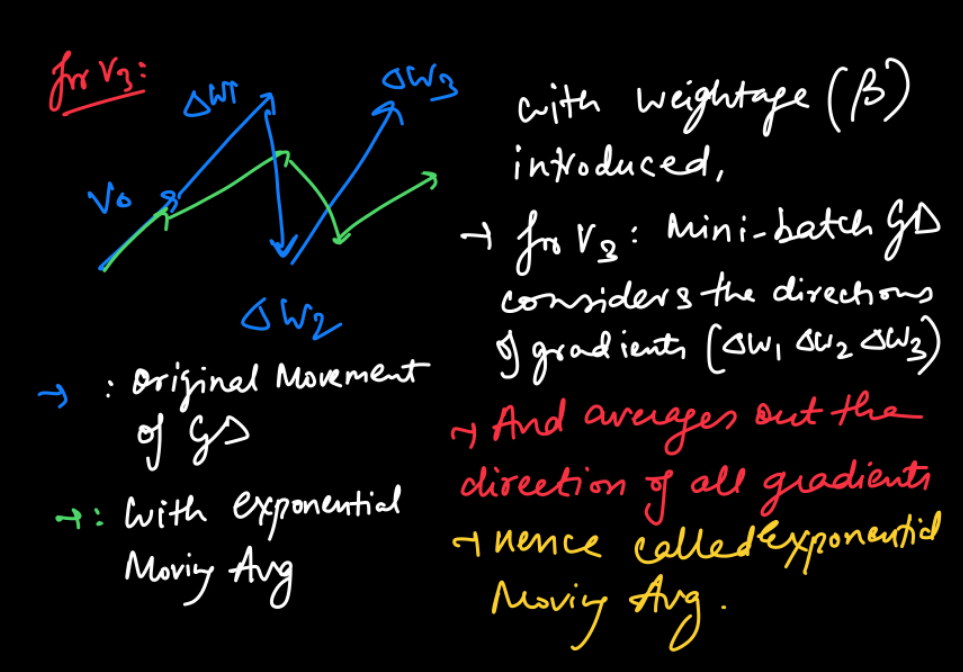 for V3:
ΔW1
ΔW3
V0
ΔW2
→ : Original Movement
of GD
→ : With exponential
Moving Avg
with weightage (β)
introduced,
→ for V3: Mini-batch GD
considers the directions
of gradients (ΔW1 ΔW2 ΔW3)
→ And averages out the
direction of all gradients
→ Hence called exponential
Moving Avg.